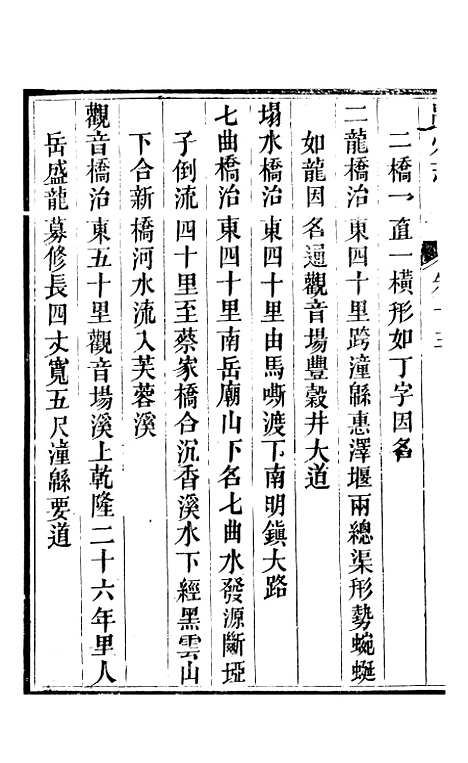 二橋一直一橫形如丁字因名
二龍橋治東四十里跨潼緜惠澤堰兩總渠形勢蜿蜒
如龍因名通觀音場豐穀井大道
塌水橋治東四十里由馬嘶渡下南明鎮大路
七曲橋治東四十里南岳廟山下名七曲水發源斷埡
子倒流四十里至蔡家橋合沉香溪水下經黑雲山
下合新橋河水流入芙蓉溪
觀音橋治東五十里觀音場溪上乾隆二十六年里人
岳盛龍募修長四丈寬五尺潼緜要道